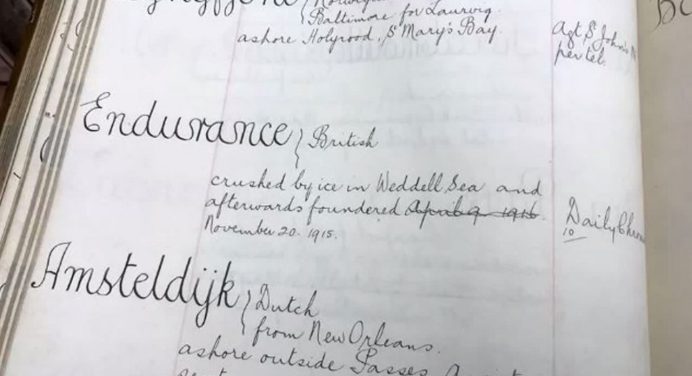 Norwegian
Baltimore for Laurvig
ashore Holyrood, St Mary's Bay.
Agt St John's
per tel.
Endurance } British
crushed by ice in Weddell Sea and
afterwards foundered April 9 1916
November 20. 1915.
Daily Chron
10
Amsteldijk } Dutch
from New Orleans.
ashore outside Passes